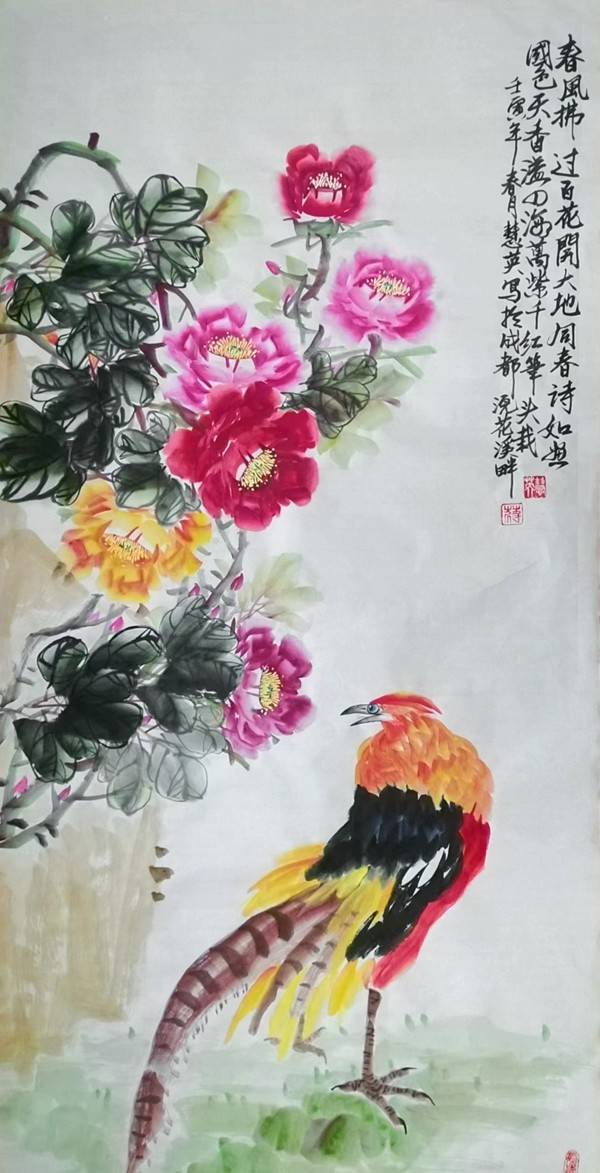 春風拂过百花開大地同春诗如無
國色天香溢四海萬紫千红筆头栽
壬寅年春月慧英写於成都浣花溪畔